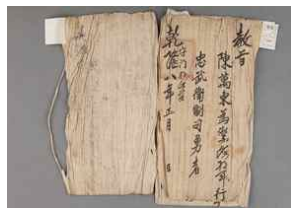 教旨
陳萬東為禦侮將軍行
忠武衛副司勇者
乾隆八年 月 日